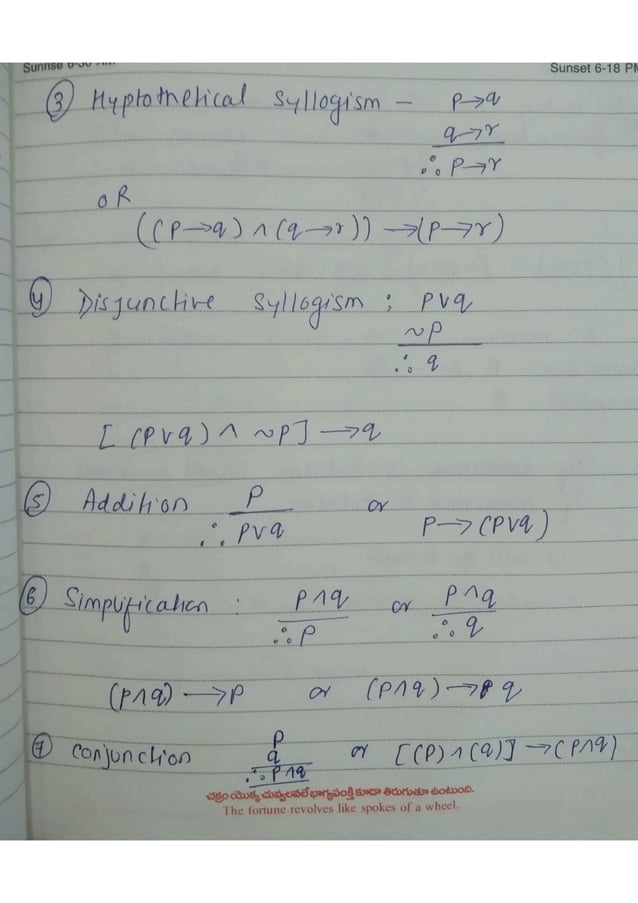 Sunrise 6-30 AM Sunset 6-18 PM
③ Hyptothetical Syllogism — P→q
q→r
∴ P→r
OR
((P→q) ∧ (q→r)) → (P→r)
④ Disjunctive Syllogism ; P∨q
~P
∴ q
[ (P∨q) ∧ ~P ] → q
⑤ Addition P or
∴ P∨q P → (P∨q)
⑥ Simplification : P∧q or P∧q
∴ P ∴ q
(P∧q) → P or (P∧q) → q
⑦ Conjunction P
q or [(P) ∧ (q)] → (P∧q)
∴ P∧q
చక్రం యొక్క చువ్వలవలే భాగ్యపంక్తి కూడా తిరుగుతూ ఉంటుంది.
The fortune revolves like spokes of a wheel.